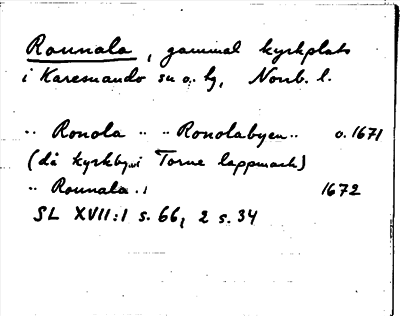 Rounala, gammal kyrkplats
i Karesuando sn o. lg, Norrb. l.
.. Ronola .. .. Ronolabyen .. o. 1671
(då kyrkby i Torne lappmark)
.. Rounala .. 1672
SL XVII:1 s. 66, 2 s. 34